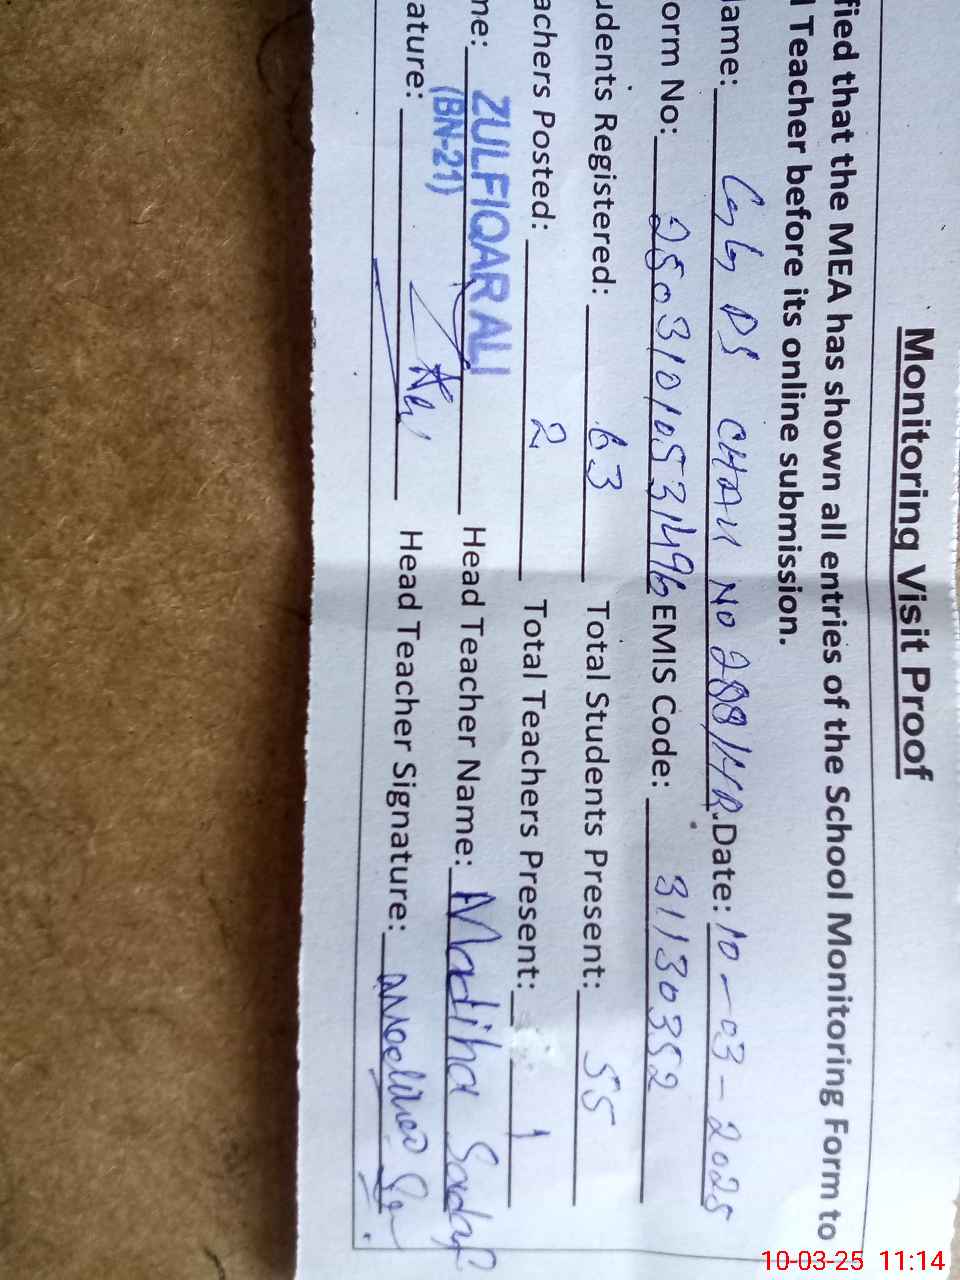 Monitoring Visit Proof
fied that the MEA has shown all entries of the School Monitoring Form to
Teacher before its online submission.
ame: DS CHAK No 288/HR. Date: 10-03-2025
orm No: 25031010531496 EMIS Code: 31130352
udents Registered: 63 Total Students Present: 55
achers Posted: 2 Total Teachers Present: 1
me: ZULFIQAR ALI Head Teacher Name: Madiha Sadaf
(BN-21)
ature: Head Teacher Signature: Madiha
10-03-25 11:14